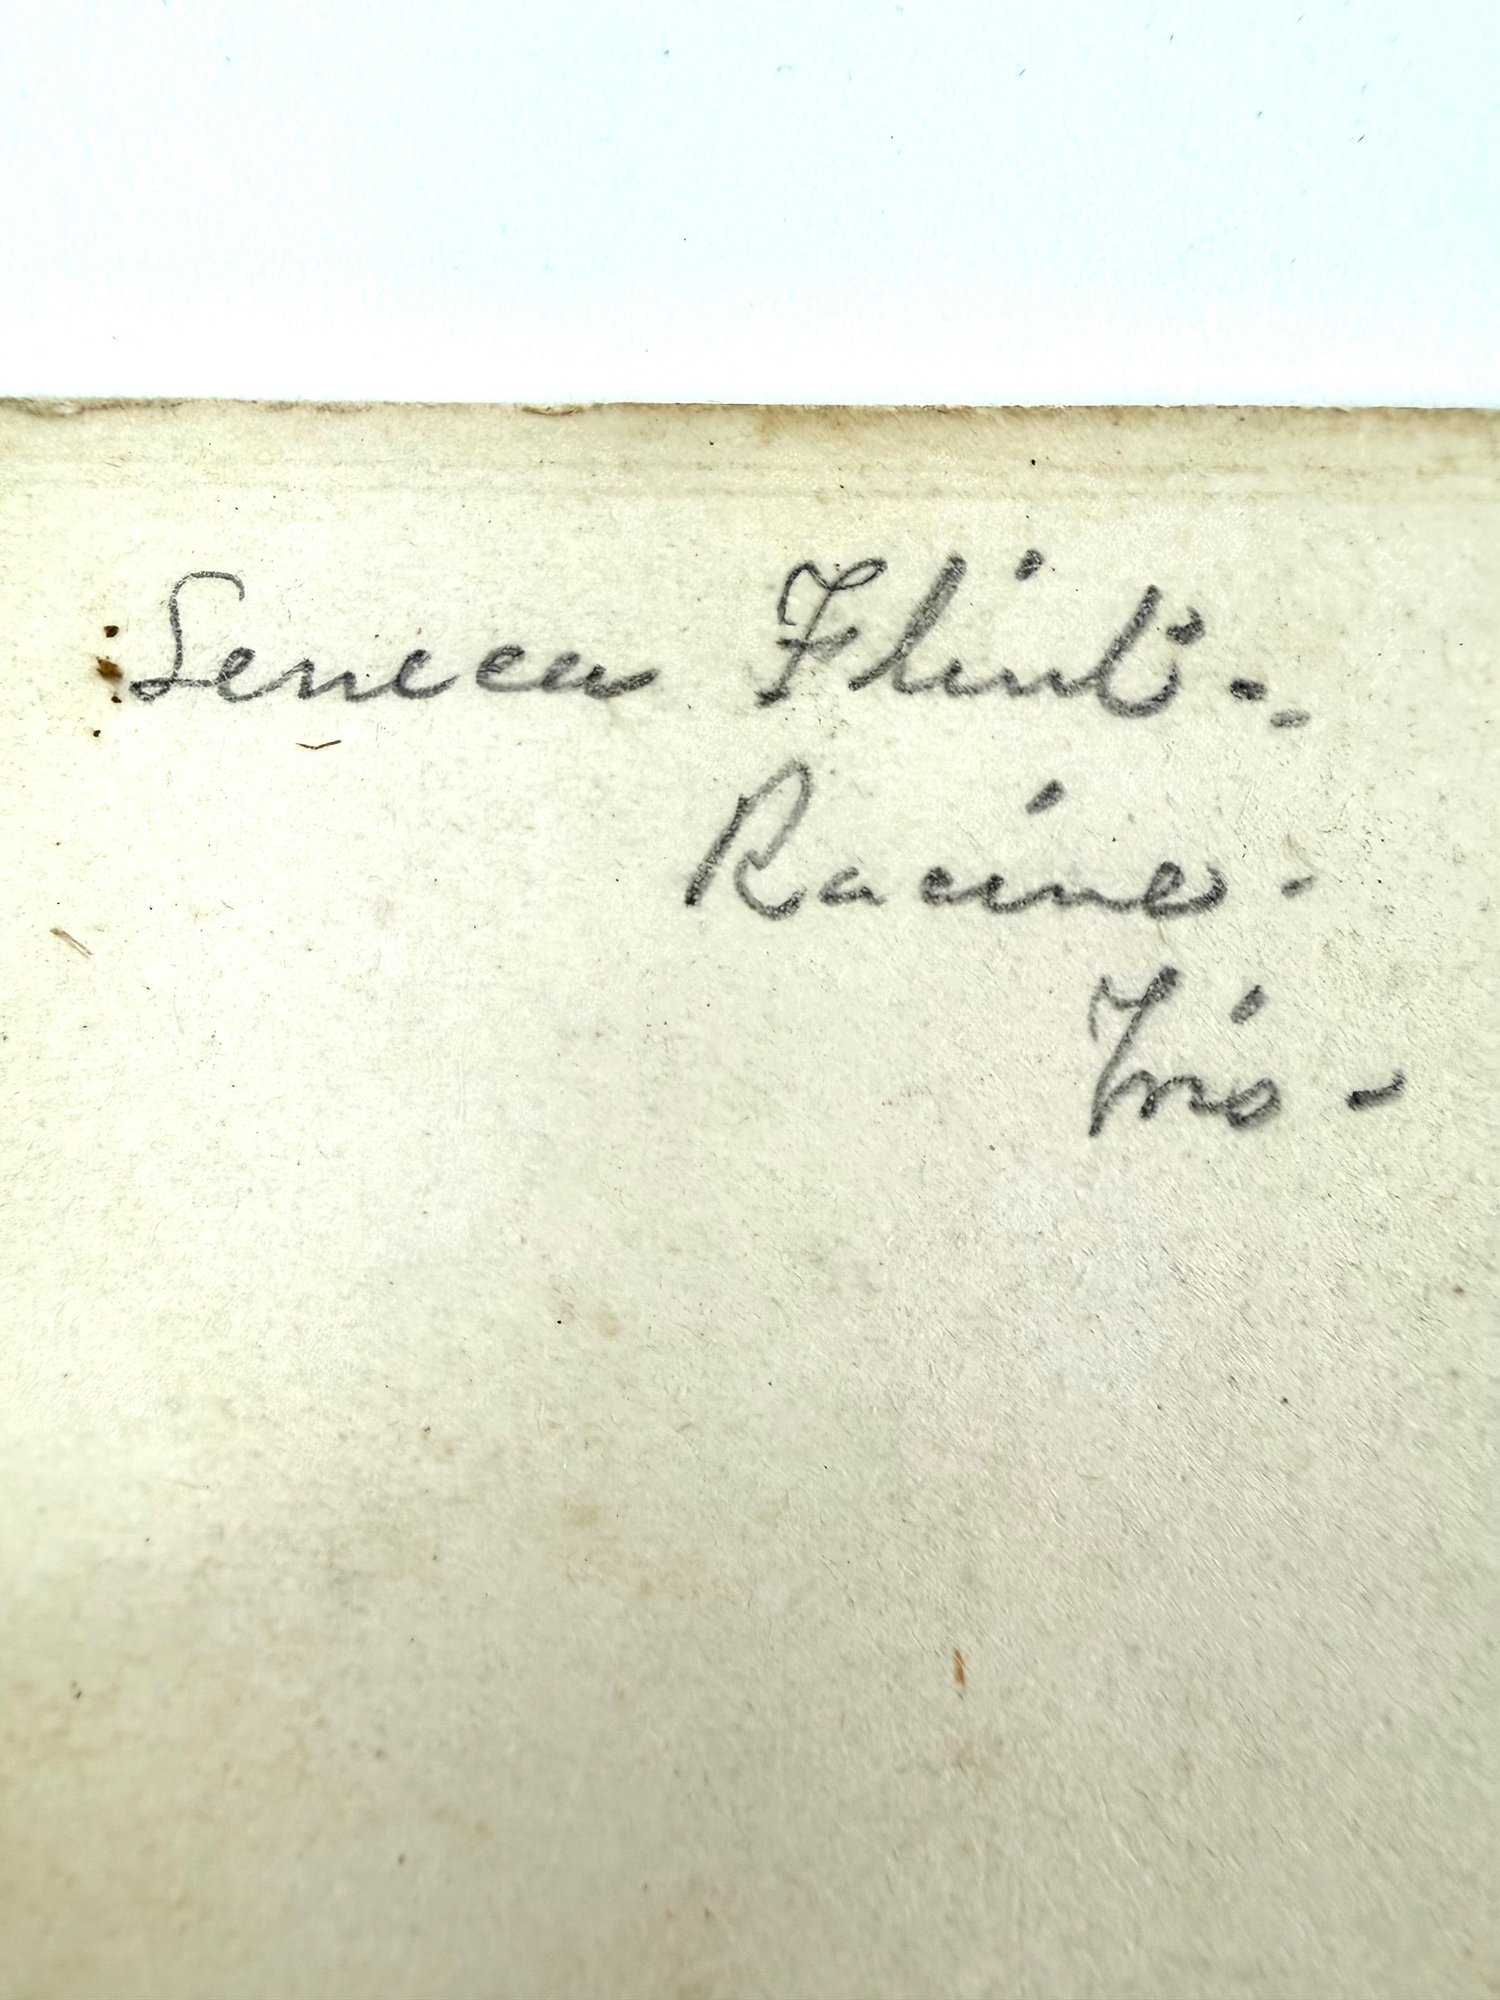 Seneca Flint -
Racine -
Wis -